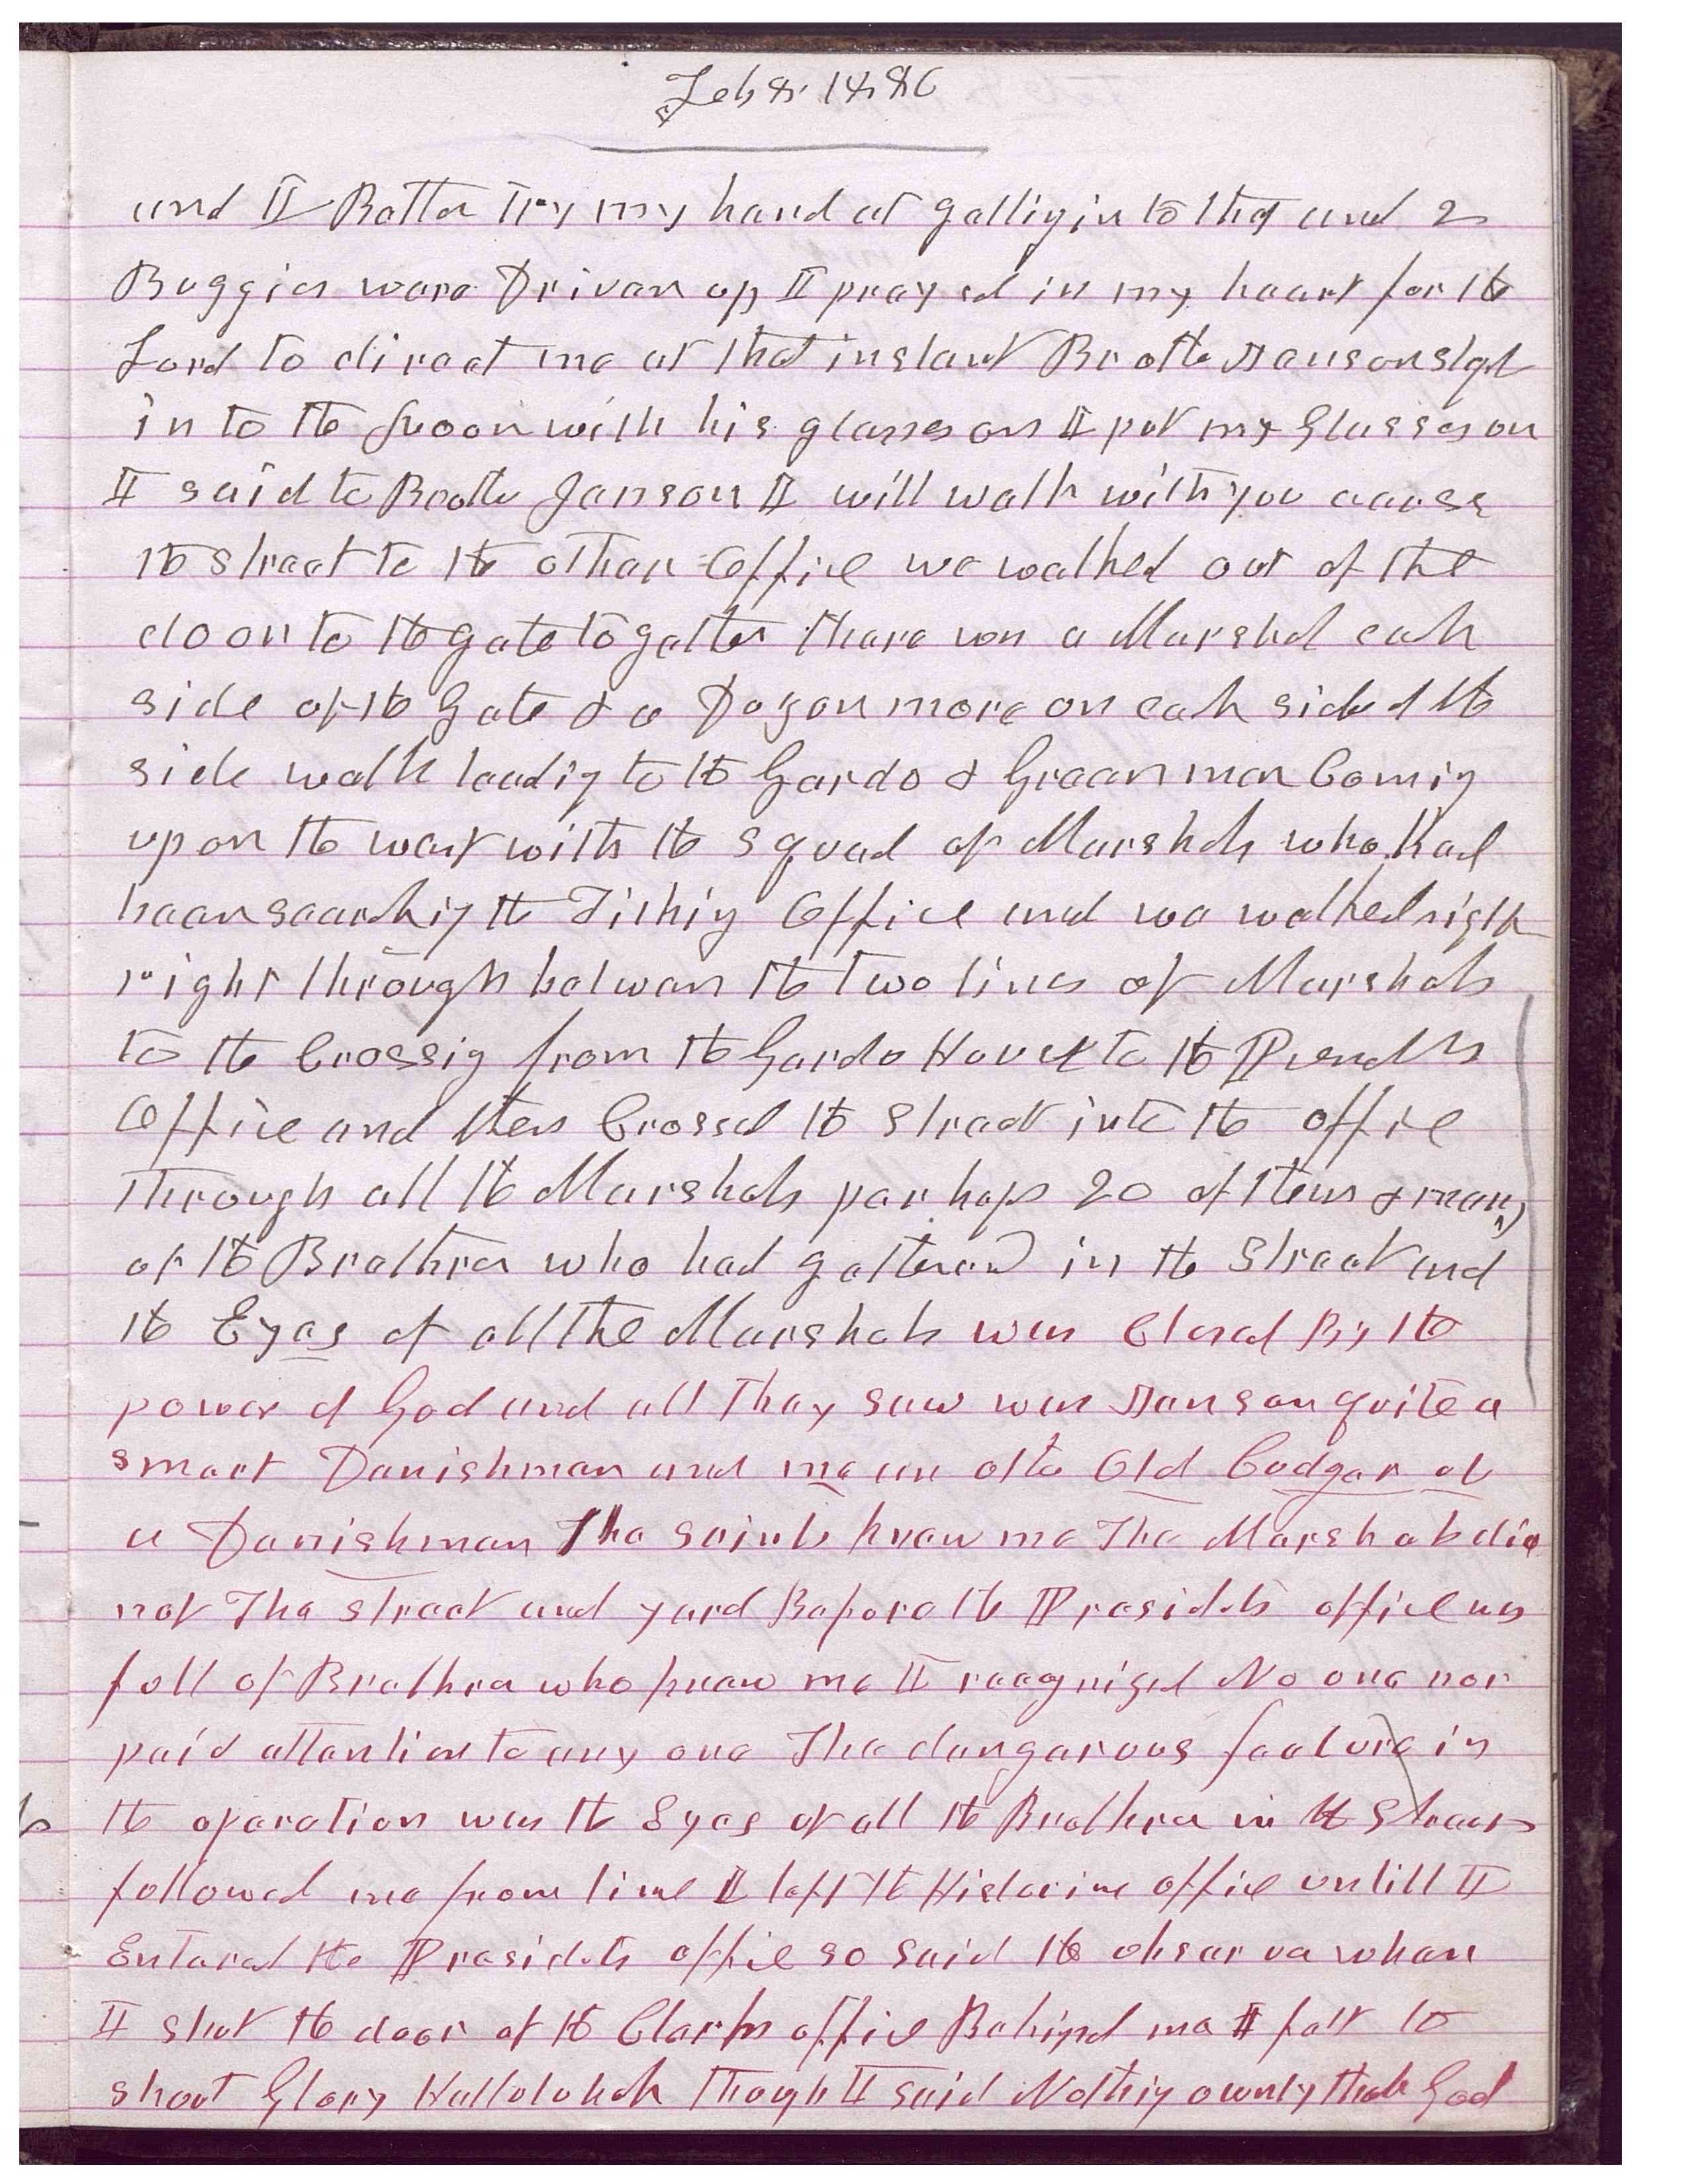 Feb 8, 1886
and I Better Try my hand at getting in to that and 2
Buggies ware Driven up I prayed in my heart for the
Lord to direct me at that instant Brother Jenson stept
in to the Room with his glasses on I put my Glasses on
I said to Brother Jenson I will walk with you across
the street to the other Office we walked out of the
door to the gate together there was a Marshal each
side of the Gate & a Dozen more on each side of the
side walk leading to the Gardo & Greenman Coming
upon the walk with the squad of Marshals who had
been searching the Tithing Office and we walked right
right through between the two lines of Marshals
to the Crossing from the Gardo House to the Presidts
Office and then Crossed the street into the office
Through all the Marshals perhaps 20 of them & many
of the Brethren who had gathered in the street and
the Eyes of all the Marshals was Closed By the
power of God and all They saw was Jenson quite a
smart Danishman and me an other Old Codger of
a Danishman The saints knew me The Marshals did
not The street and yard Before the Presidts office was
full of Brethren who knew me I recognized No one nor
paid attention to any one The dangerous feature in
the operation was the Eyes of all the Brethren in the street
followed me from time I left the Historians office untill I
Entered the Presidents office so said the observer when
I shut the door of the Clerks office Behind me I felt to
shout Glory Hallelulah though I said Nothing ownly thank God